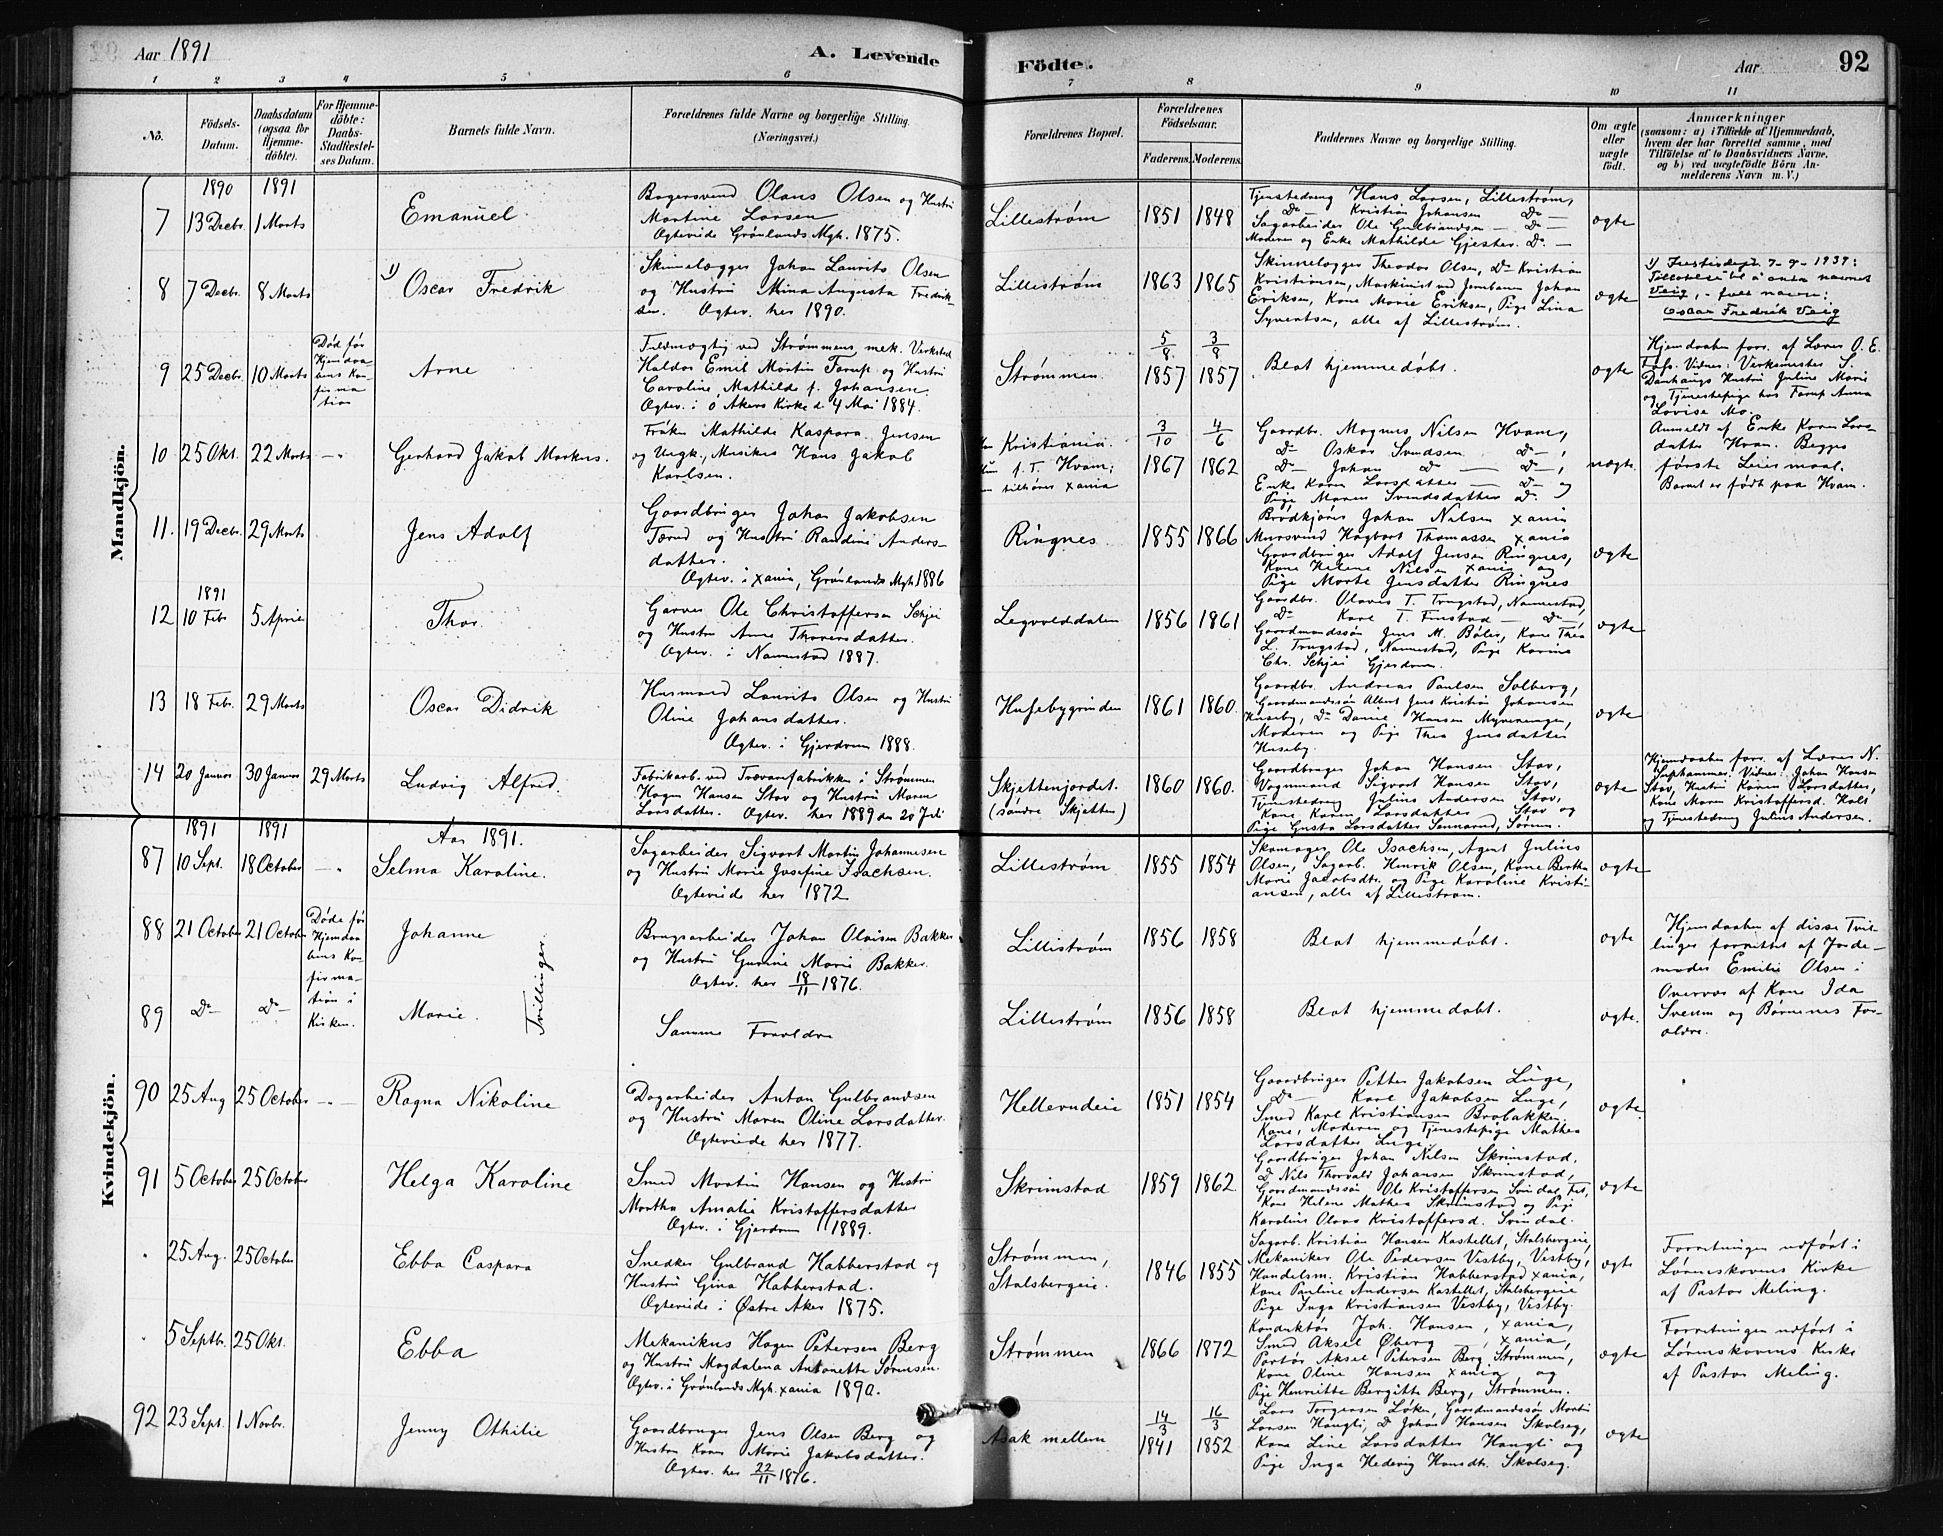 Aar 1891
A. Levende
Födte.
Aar
92
1 2 3 4 5 6 7 8 9 10 11
Nö.
Födsels-
Datum.
Daabsdatum
(ogsaa for
Hjemme-
döbte).
For Hjemme-
döbte:
Daabs-
Stadfæstel-
ses Datum.
Barnets fulde Navn.
Forældrenes fulde Navne og borgerlige Stilling.
(Næringsvei.)
Forældrenes Bopæl.
Forældrenes
Födselsaar.
Faderens. Moderens.
Faddernes Navne og borgerlige Stilling.
Om ægte
eller
uægte
födt.
Anmærkninger
(saasom: a) i Tilfælde af Hjemmedaab,
hvem der har forrettet samme, med
Tilföielse af to Daabsvidners Navne,
og b) ved uægtefödte Börn An-
melderens Navn m. V.)
Mandkjön.
1890 1891
7 13 Decbr. 1 Marts
Emanuel
Bagersvend Olaus Olsen og Hustru
Martine Larsen
Ægteviede Grønlands Mgh. 1875.
Lillestrøm
1851 1848
Tjenestedreng Hans Larsen, Lillestrøm,
Do Kristian Johansen Do
Sagarbeider Ole Gulbrandsen Do
Moderen og Enke Mathilde Gjester. Do
ægte
8 7 Decbr. 8 Marts
1) Oscar Fredrik
Skinnelægger Johan Laurits Olsen
og Hustru Mina Augusta Fredrik-
sen. Ægtev. her 1890.
Lillestrøm
1863 1865
Skinnelægger Theodor Olsen, Do Kristian
Kristiansen, Maskinist ved Jernbanen Johan
Eriksen, Kone Marie Eriksen, Pige Lina
Syvertsen, alle af Lillestrøm.
ægte
Veig, - fullt navn:
Oscar Fredrik Veig
9 25 Decbr. 10 Marts
Død før
Hjemdaa-
bens Kon-
firma-
tion
Arne
Fuldmægtig ved Strømmens mek. Verksted
Haldor Emil Martin Farup og Hustru
Caroline Mathilde f. Johansen
Ægtev. i Ø Akers Kirke d 4 Mai 1884.
Strømmen
5/8 1857 3/8 1857
Blot hjemmedøbt.
ægte
Hjemdaaben forr. af Lærer O. E.
Vidner: Verkmester S.
Danhaugs Hustru Juline Marie
og Tjenestepige hos Farup Anna
Lovise Mo.
10 25 Okt. 22 Marts
Gerhard Jakob Markus.
Frøken Mathilde Kaspara Jensen
og Ungk., Musiker Hans Jakob
Karlsen.
Kristiania.
f. T. Hvam;
tilhører Xania
3/10 1867 4/6 1862
Gaardbr. Magnus Nilsen Hvam,
Do Oskar Svendsen Do,
Do Johan Do Do,
Enke Karen Larsdatter Do og
Pige Maren Svendsdatter Do.
uægte.
Anmeldt af Enke Karen Lars-
datter Hvam. Begges
første Leiermaal.
Barnet er født paa Hvam.
11. 19 Decbr. 29 Marts
Jens Adolf
Gaardbruger Johan Jakobsen
og Hustru Randine Anders-
datter.
Ægtev. i Xania, Grønlands Mgh 1886
Ringnes
1855 1866
Brødkjører Johan Nilsen Xania
Mursvend Hagbart Thomassen Xania
Gaardbruger Adolf Jensen Ringnes,
Kone Helene Nilsen Xania og
Pige Marte Jensdatter Ringnes
ægte
1891
12 10 Febr 5 April
Thor.
Garver Ole Christoffersen Schjei
og Hustru Anne Thorersdatter.
Ægtev. i Nannestad 1887.
Legvolddalen
1856 1861
Gaardbr. Olaves T. Trugstad, Nannestad,
Do Karl T. Finstad Do
Gaardmandssøn Jens M. Bøler, Kone Thea
L. Trugstad, Nannestad, Pige Karine
Chr. Schjei Gjerdrum.
ægte
13 18 Febr. 29 Marts
Oscar Didrik
Husmand Laurits Olsen og Hustru
Oline Johansdatter.
Ægtev. i Gjerdrum 1888.
Husebygrinden
1861 1860
Gaardbr. Andreas Paulsen Solberg,
Gaardmandssøn Albert Jens Kristian Johansen
Huseby, Do Hansen Myreringen,
Moderen og Pige Thea Jensdatter
Huseby.
ægte
14 20 Januar 30 Januar 29 Marts
Ludvig Alfred.
Fabrikarb. ved Trævarefabrikken i Strømmen
Hagen Hansen Stav og Hustru Maren
Larsdatter. Ægtev. her 1889 den 20 Juli
Skjettenjordet.
(søndre Skjetten)
1860 1860
Gaardbruger Johan Hansen Stav,
Vognmand Sigvart Hansen Stav,
Tjenestedreng Julius Andersen Stav,
Kone Karen Larsdatter Stav og
Pige Gusta Larsdatter Sørum.
ægte
Hjemdaaben forr. af Lærer N.
Vidner: Johan Hansen
Stav, Hustru Karen Larsdatter,
Kone Maren Kristoffersd. Holt
og Tjenestedreng Julius Andersen.
Kvindekjön.
1891 1891 Aar 1891.
87 10 Sept. 18 October
Selma Karoline.
Sagarbeider Sigvart Martin Johannesen
og Hustru Marie Josefine Isachsen.
Ægteviede her 1872
Lillestrøm
1855 1854
Skomager Ole Isachsen, Agent Julius
Olsen, Sagarb. Henrik Olsen, Kone Berthe
Marie Jacobsdtr. og Pige Karoline Kristi-
ansen, alle af Lillestrøm.
ægte
88 21 October 21 October
Døde før
Hjemdaa-
bens Kon-
firma-
tion i
Kirken.
Johanne
Tvillinger.
Brugsarbeider Johan Olaisen Bakken
og Hustru Gurine Marie Bakken.
Ægtev. her 18/11 1876.
Lillestrøm
1856 1858
Blot hjemmedøbt.
ægte
Hjemdaaben af disse Tvil-
linger forrettet af Jorde-
moder Emilie Olsen i
Overvær af Kone Ida
Sveum og Børnenes For-
ældre.
89 Do Do
Marie.
Samme Forældre
Lillestrøm
1856 1858
Blot hjemmedøbt.
ægte.
90 25 Aug 25 October
Ragna Nikoline
Dagarbeider Anton Gulbrandsen
og Hustru Maren Oline Larsdatter.
Ægteviede her 1877.
Hellerudeie
1851 1854
Gaardbruger Petter Jakobsen Luge,
Do Karl Jakobsen Luge,
Smed Karl Kristiansen Brobakken,
Kone, Moderen og Tjenestepige Mathea
Larsdatter Luge.
ægte.
91 5 October 25 October
Helga Karoline
Smed Martin Hansen og Hustru
Martha Amalie Kristoffersdatter
Ægtev. i Gjerdrum 1889.
Skrimstad
1859 1862
Gaardbruger Johan Nilsen Skrimstad.
Do Nils Thorvald Johansen Skrimstad,
Gaardmandssøn Ole Kristoffersen Svindal Fet,
Kone Helene Mathea Skrimstad og Pige
Karoline Olava Kristoffersd. Svindal.
ægte
25 Aug. 25 October
Ebba Caspara
Snedker Gulbrand Habberstad og
Hustru Gina Habberstad.
Ægteviede i Østre Aker 1875.
Strømmen,
Stalsbergeie.
1846 1855
Sagarb. Kristian Hansen Kastellet, Stalsbergeie,
Mekaniker Ole Pedersen Vestby, Vestby,
Handelsm. Kristian Habberstad Xania,
Kone Pauline Andersen Kastellet, Stalsbergeie
Pige Inga Kristiansen Vestby, Vestby.
ægte
Forretningen udført i
Lørenskovens Kirke
af Pastor Meling.
5 Septbr. 25 Okt.
Ebba
Mekanikus Hagen Petersen Berg
og Hustru Magdalena Antonette Sørensen.
Ægtev. i Grønlands Mgh. Xania 1890.
Strømmen
1866 1872
Konduktør Joh. Hansen, Xania,
Smed Aksel Øberg, Xania,
Portør Aksel Petersen Berg Strømmen,
Kone Oline Hansen Xania og
Pige Henriette Bergitte Berg, Strømmen.
ægte
Forretningen udført i
Lørenskovens Kirke
af Pastor Meling.
92 23 Sept. 1 Novbr.
Jenny Othilie
Gaardbruger Jens Olsen Berg og
Hustru Karen Marie Jakobsdatter.
Ægtev. her 22/11 1876.
Asak mellem
14/3 1841 16/3 1852
Lars Torgersen Løken, Gaardmandssøn Martin
Larsen Haugli, Do Johan Hansen Skolseg,
Kone Line Larsdatter Haugli og
Pige Inga Hedevig Hansdtr. Skolseg.
ægte